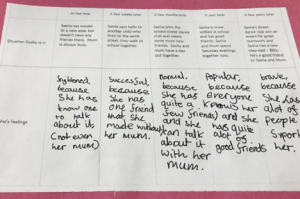 At this time
A few weeks later
A few months later
A year later
A few years later
Situation Sasha is in
Sasha has moved to a new area, but doesn't have any friends there. Mum is always busy.
Sasha says hello to another child who lives on the same street, they walk to school together.
Sasha joins the school street dance club and meets some more new friends. Sasha and mum have a day out together.
Sasha is more settled at school and has great friends. Sasha and Mum spend Saturday evenings together now.
's feelings
frightened,
because
She has
know one
to talk
about it,
(not even
her mum)
Successful,
because
She has
one friend
that she
made without
her mum.
normal,
because
she has
quite a
few friends
and she
can talk
about it
with her
mum.
Popular,
because
everyone
knows her
and she
has quite
alot of
good friends
brave,
because
She has
alot of
people
Sport
her.